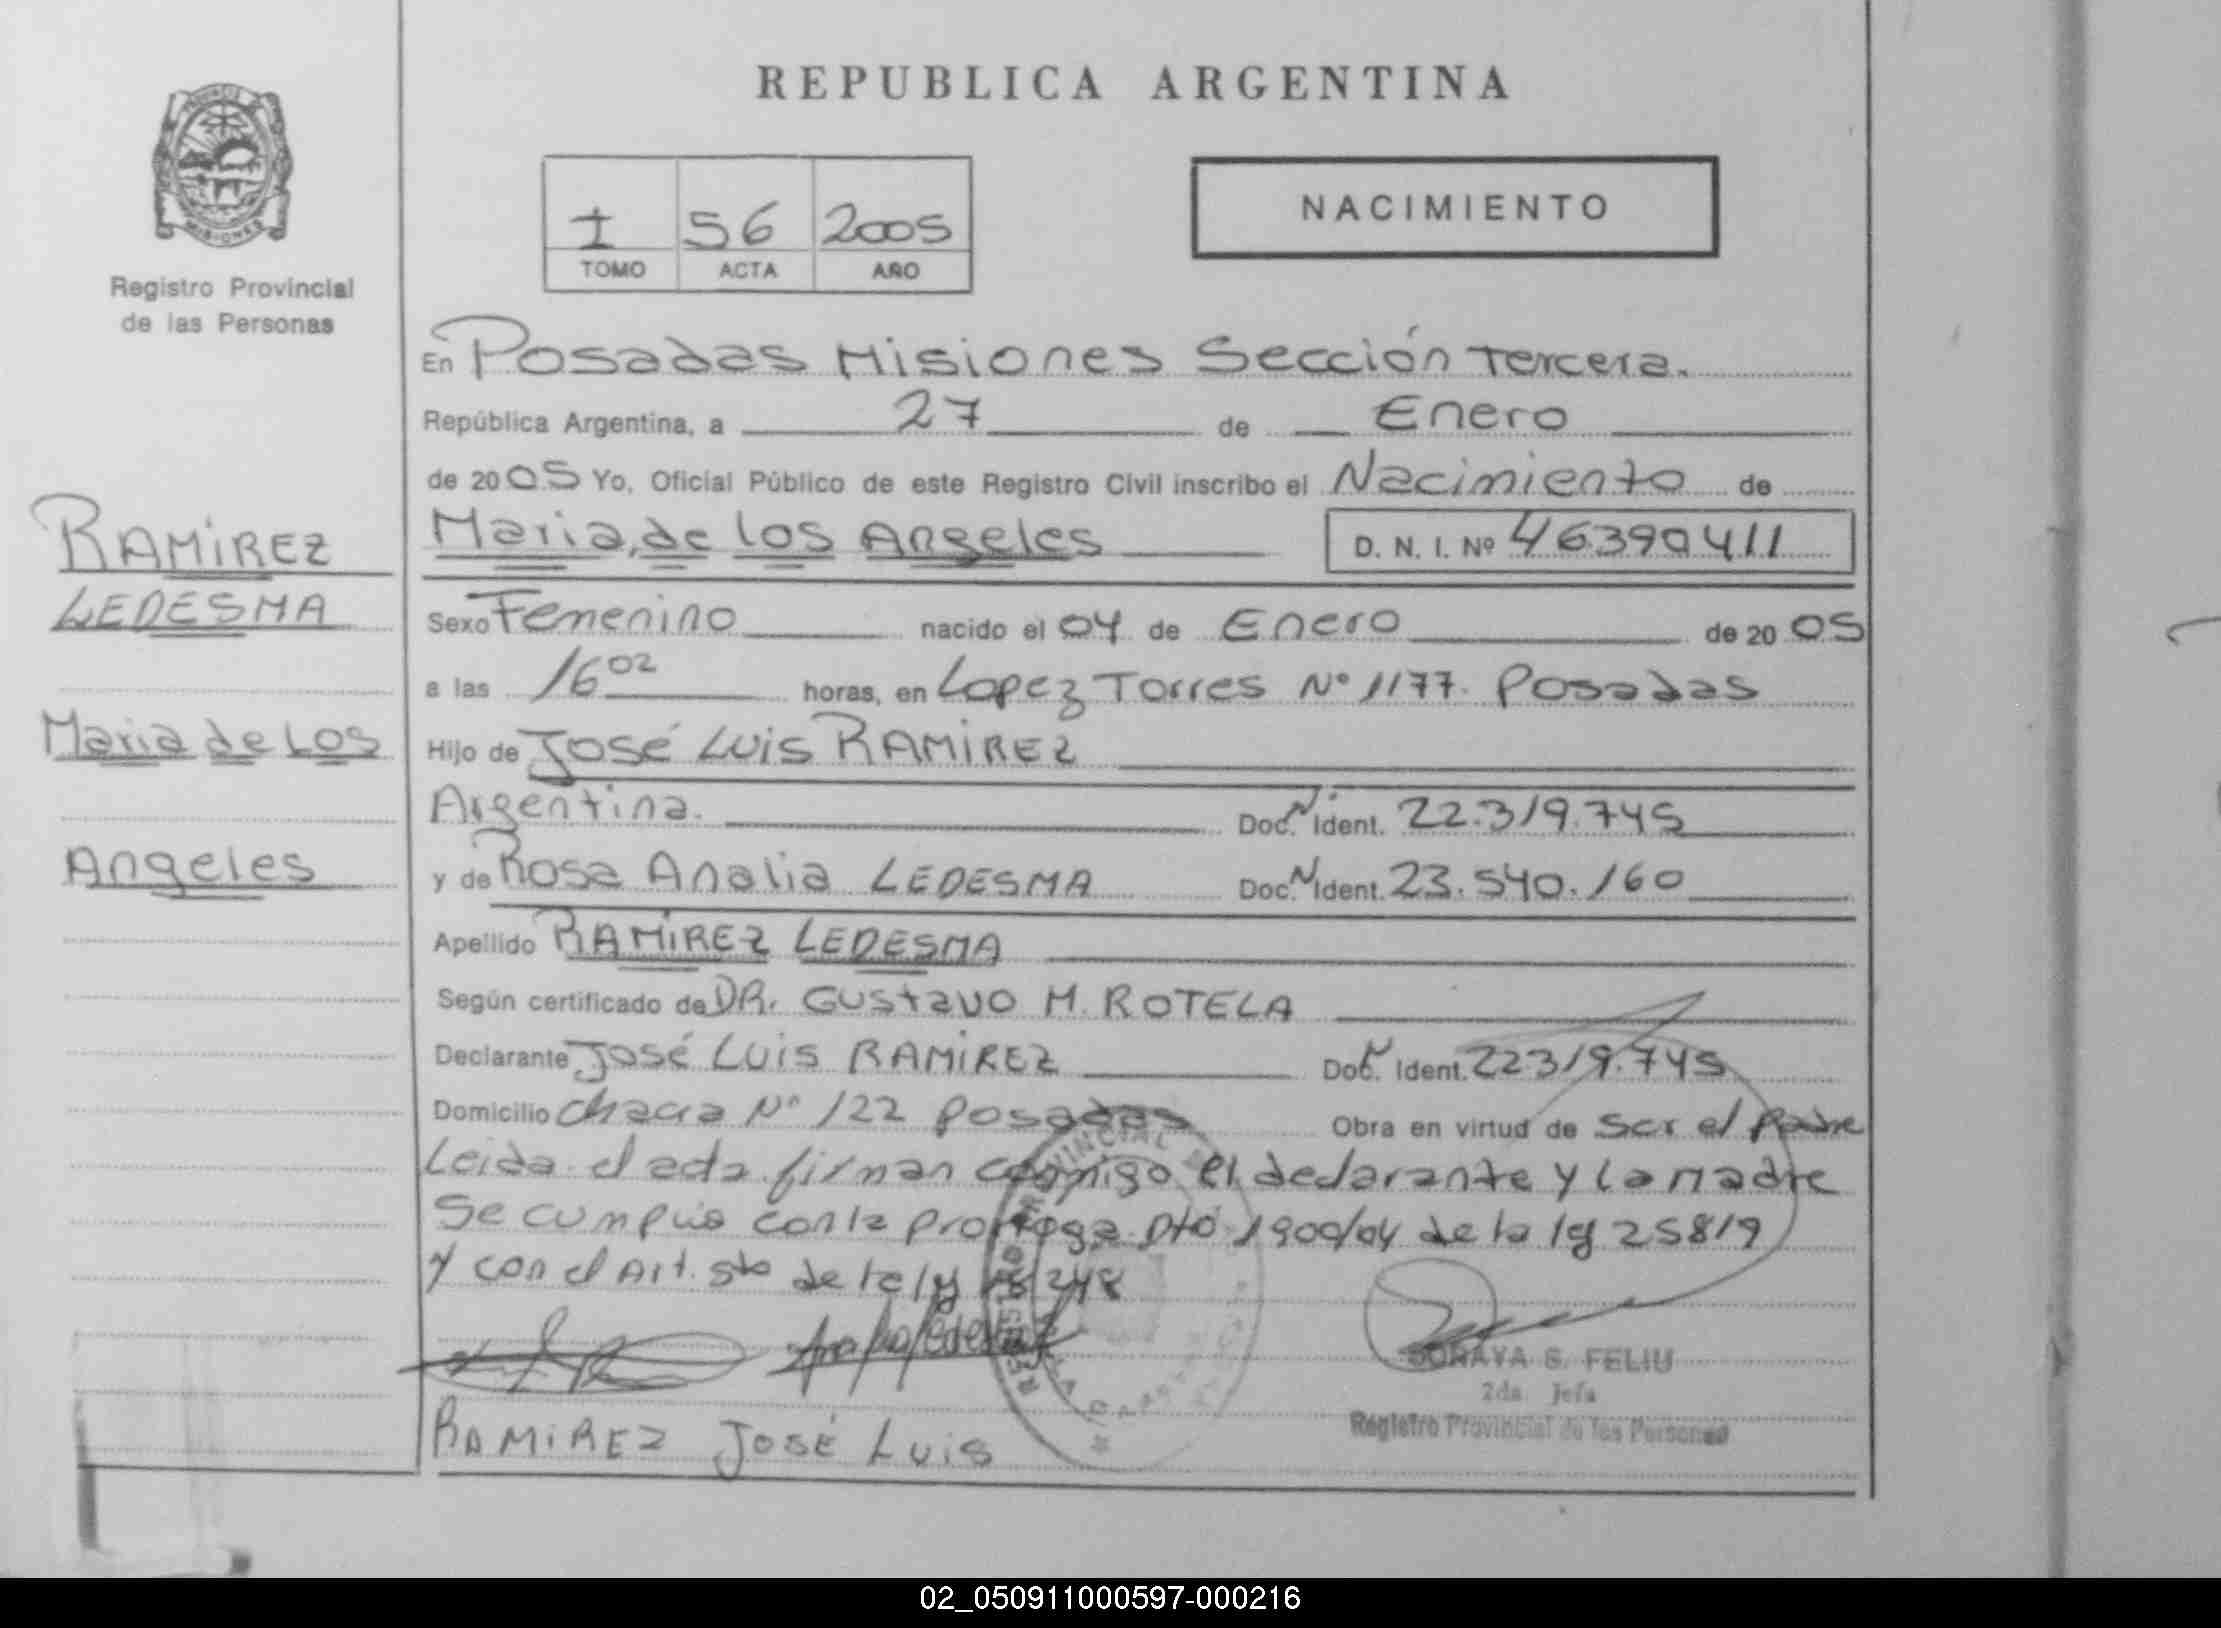 REPUBLICA ARGENTINA
PROVINCIA DE
MISIONES
Registro Provincial
de las Personas
I 56 2005
TOMO ACTA AÑO
NACIMIENTO
En Posadas Misiones Sección Tercera.
República Argentina, a 27 de Enero
de 2005 Yo, Oficial Público de este Registro Civil inscribo el Nacimiento de
Maria de los Angeles D. N. I. Nº 46390411
RAMIREZ
LEDESMA
Maria de Los
Angeles
Sexo Femenino nacido el 04 de Enero de 2005
a las 16 02 horas, en Lopez Torres Nº 1177. Posadas
Hijo de José Luis RAMIREZ
Argentina. Doc. N Ident. 22.319.745
y de Rosa Analia LEDESMA Doc. N Ident. 23.540.160
Apellido RAMIREZ LEDESMA
Según certificado de DR. GUSTAVO M. ROTELA
Declarante José Luis RAMIREZ Doc. Ident. 22319.745
Domicilio chacra Nº 122 posadas Obra en virtud de ser el padre
Leida el acta firman conmigo el declarante y la madre
Se cumplio con la prorroga Dtó 1900/04 de la ley 25819
y con el Art. 5to de la ley 18248
RAMIREZ JOSÉ LUIS
SORAYA S. FELIU
2da. Jefa
Registro Provincial de las Personas
02_050911000597-000216